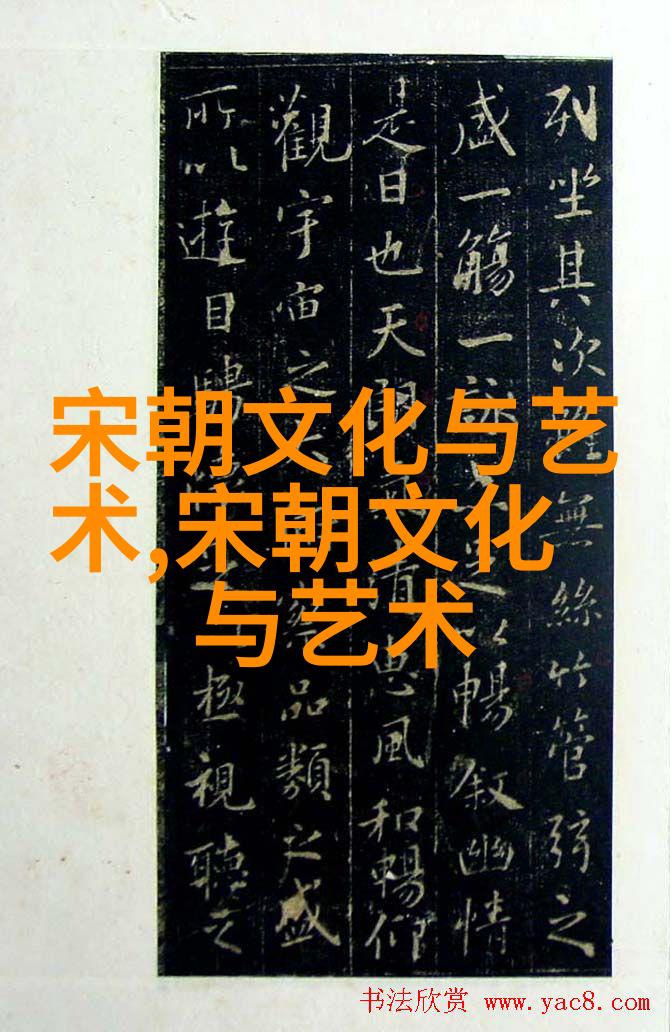 列坐其次雖無絲竹管弦之
盛一觴一詠足以暢叙幽情
是日也天朗清惠風和暢仰
觀宇宙之察品類之盛
所以遊目騁極視聽之
宋朝文化与艺
术,宋朝文化
与艺术
书法欣赏 www.yac8.com